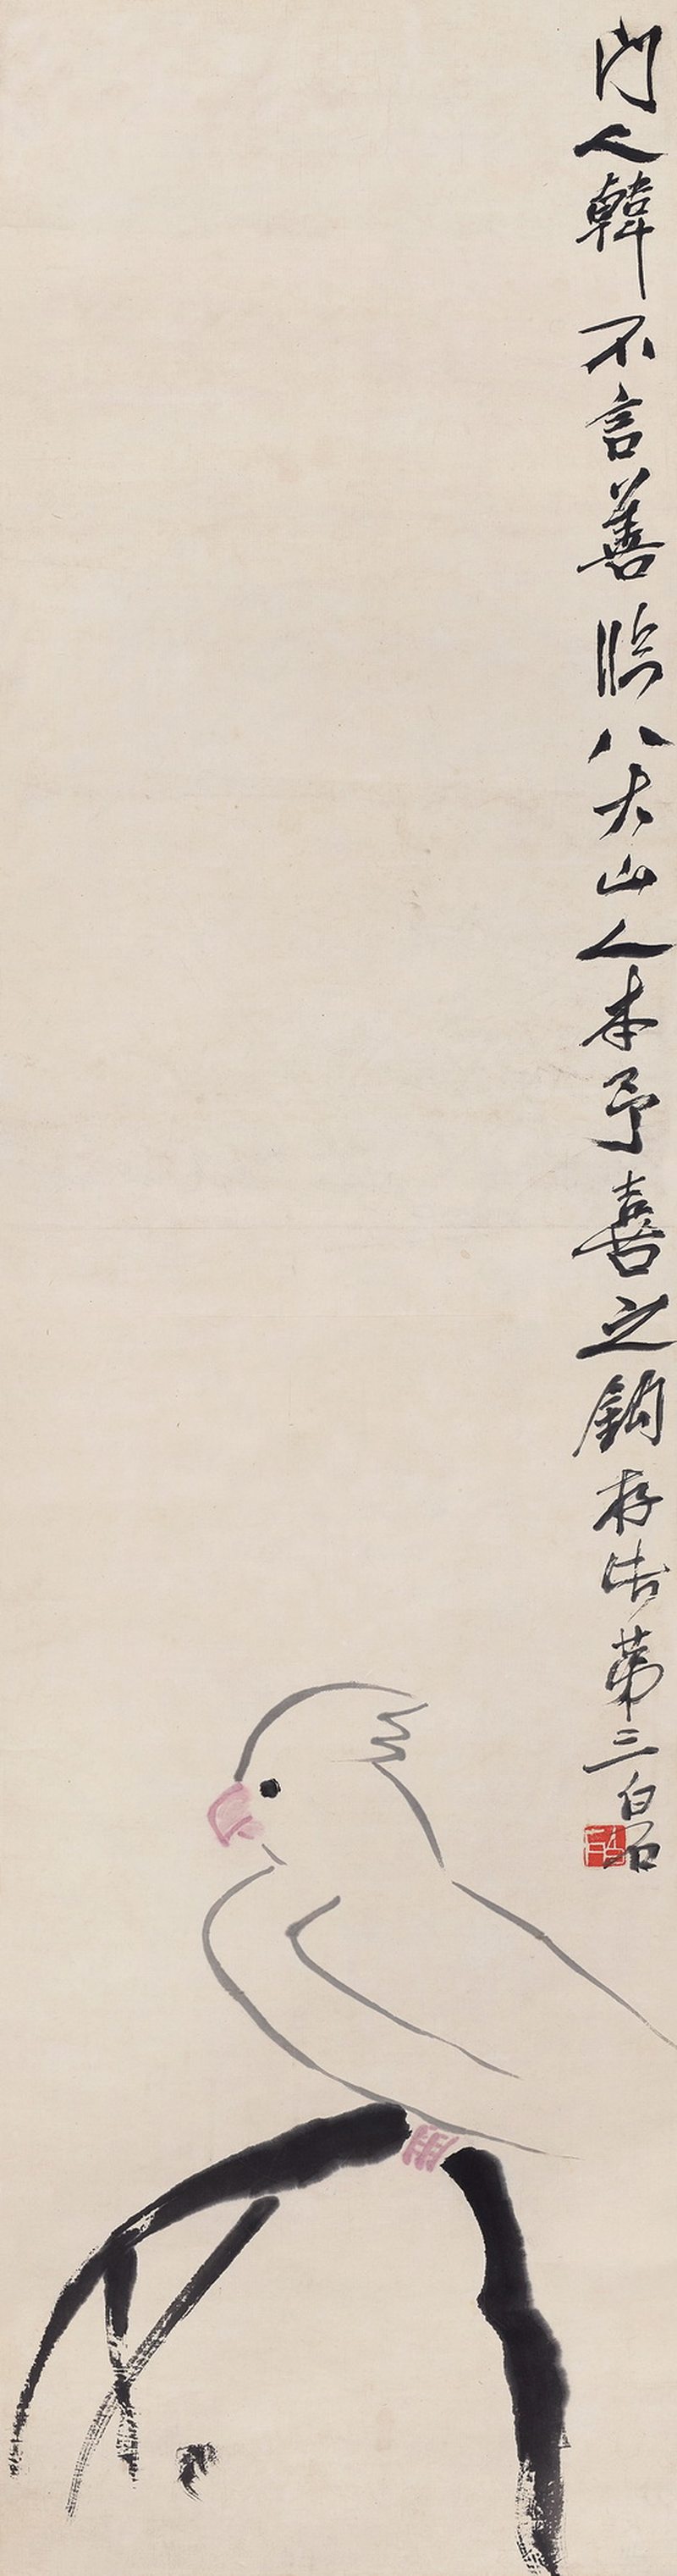 門人韓不言善臨八大山人本予喜之鉤存第三白石